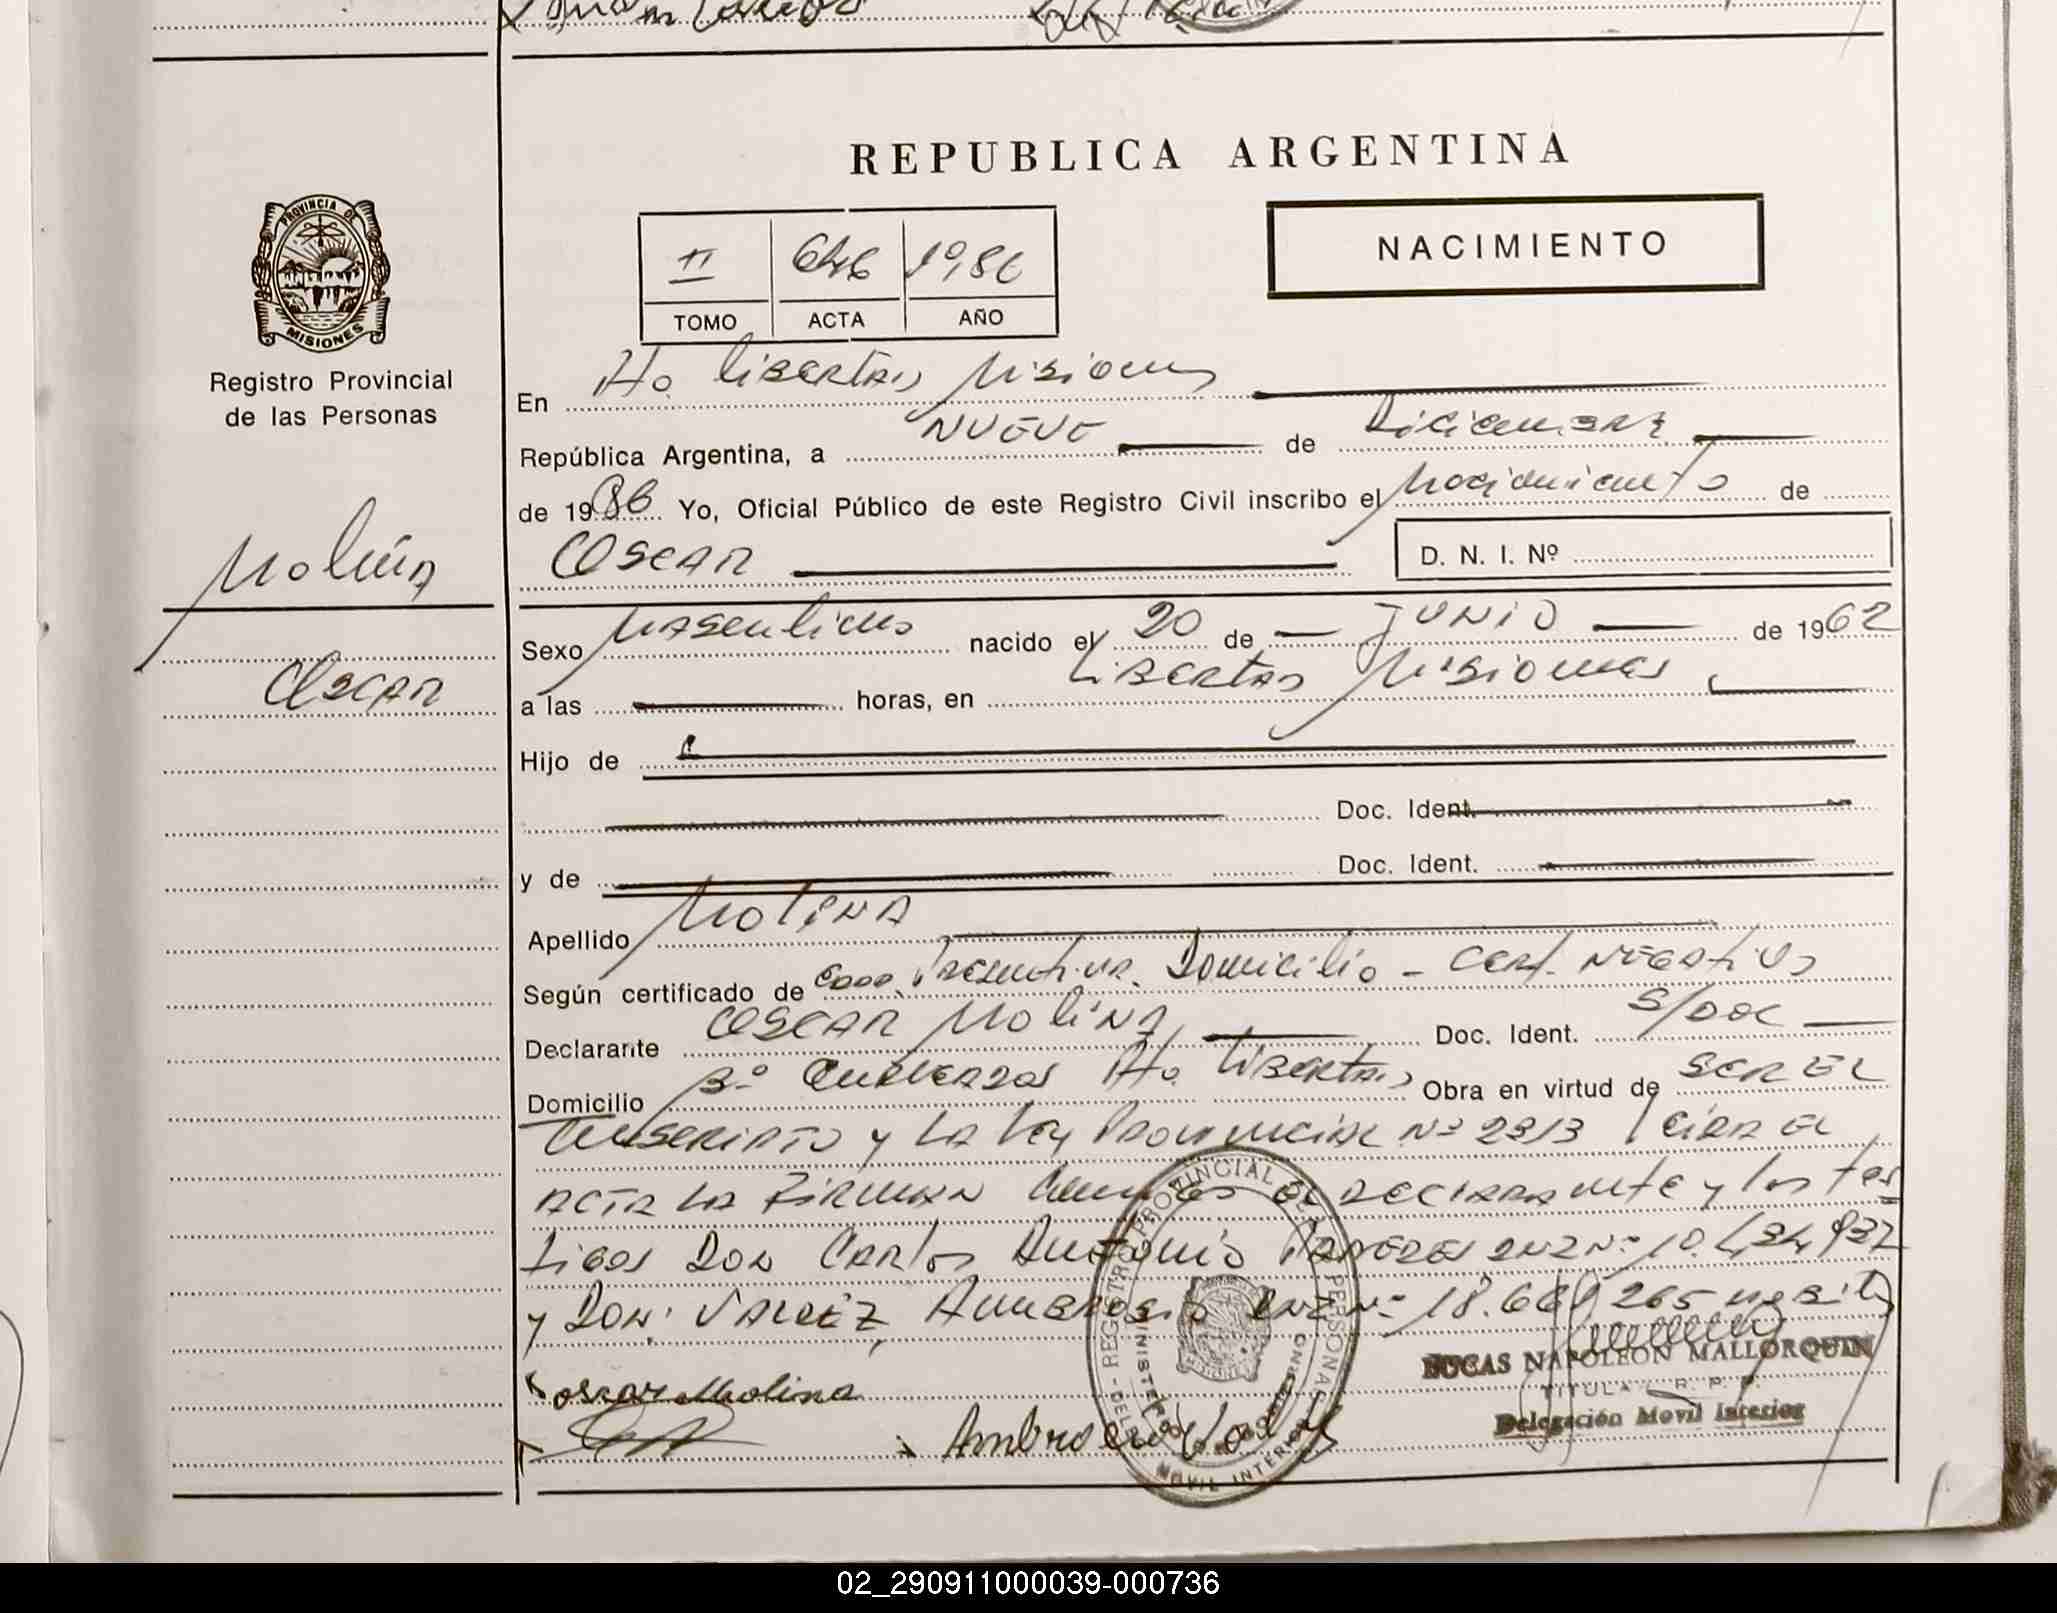 REPUBLICA ARGENTINA
NACIMIENTO
II 646 1986
TOMO ACTA AÑO
PROVINCIA DE MISIONES
Registro Provincial
de las Personas
Molina
Oscar
En Pto. Libertad Misiones
República Argentina, a NUEVE de Diciembre
de 1986 Yo, Oficial Público de este Registro Civil inscribo el Nacimiento de
OSCAR D. N. I. Nº
Sexo Masculino nacido el 20 de JUNIO de 1962
a las horas, en Libertad Misiones
Hijo de
Doc. Ident.
y de Doc. Ident.
Apellido MOLINA
Según certificado de Presuntiva. Domicilio - Cert. NEGATIVO
Declarante OSCAR MOLINA Doc. Ident. S/DOC
Domicilio Bº Pto. Libertad Obra en virtud de SER EL
INSCRIPTO y LA Ley Provincial Nº 2313 LEIDA EL
ACTA LA FIRMAN el DECLARANTE y los tes
tigos DON Carlos Antonio Nº 10.434.937
y DON. VALDEZ, AMBROSIO Nº 18.669.265
Oscar Molina
Ambrocio
LUCAS NAPOLEON MALLORQUIN
TITULAR R. P. P.
Delegación Movil Interior
REGISTRO PROVINCIAL DE LAS PERSONAS
MINISTERIO DE GOBIERNO
MOVIL INTERIOR
02_290911000039-000736